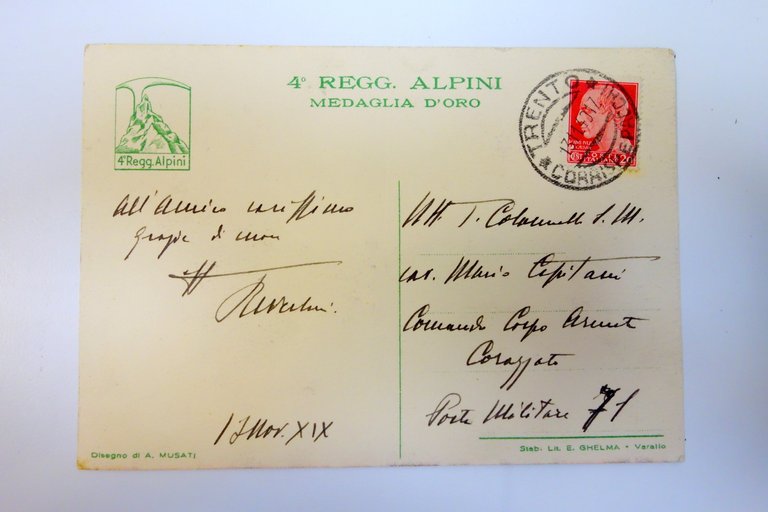 4° REGG. ALPINI
MEDAGLIA D'ORO
4° Regg. Alpini
TRENTO
CORRISP
All'Amico carissimo
grazie di cuore
17 Nov. XIX
Colonnello S. M.
cav. Mario Capitani
Comando Corpo Armata
Corazzato
Posta Militare 71
Disegno di A. MUSATI
Stab. Lit. E. GHELMA • Varallo